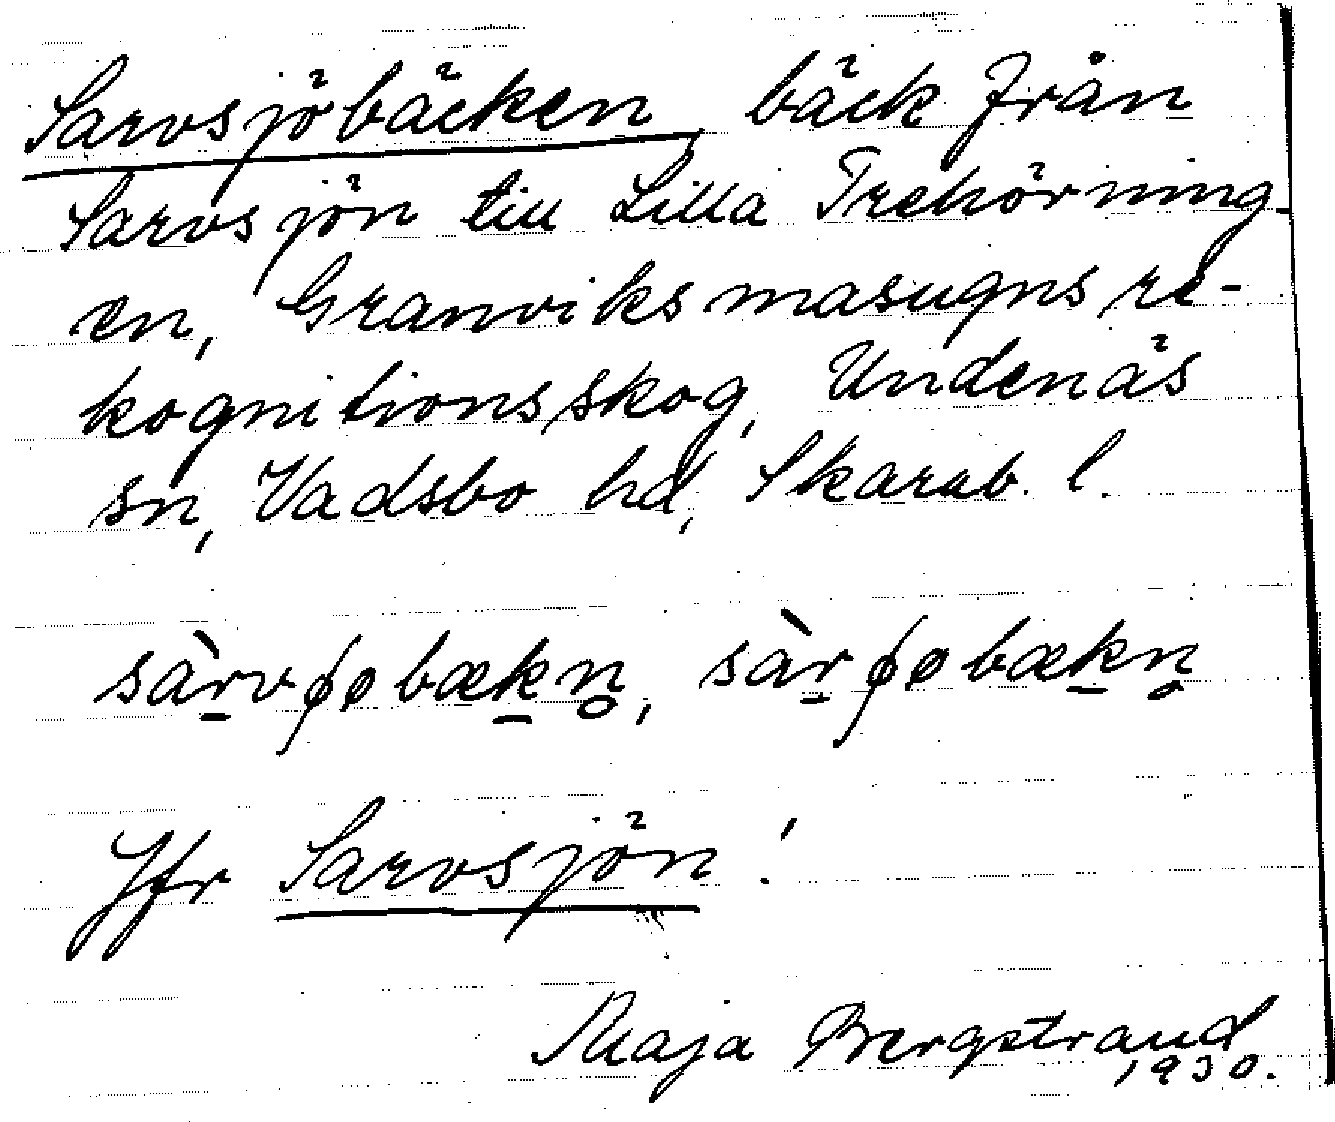 Sarvsjöbäcken, bäck från
Sarvsjön till Lilla Trehörning-
en, Granviks masugns re-
kognitionsskog, Undenäs
sn, Vadsbo hd, Skarab. l.
sàr̠vʃøbæk̠n̥, sàr̠ʃøbæk̠n̥
Jfr Sarvsjön!
Maja Bergstrand
1930.